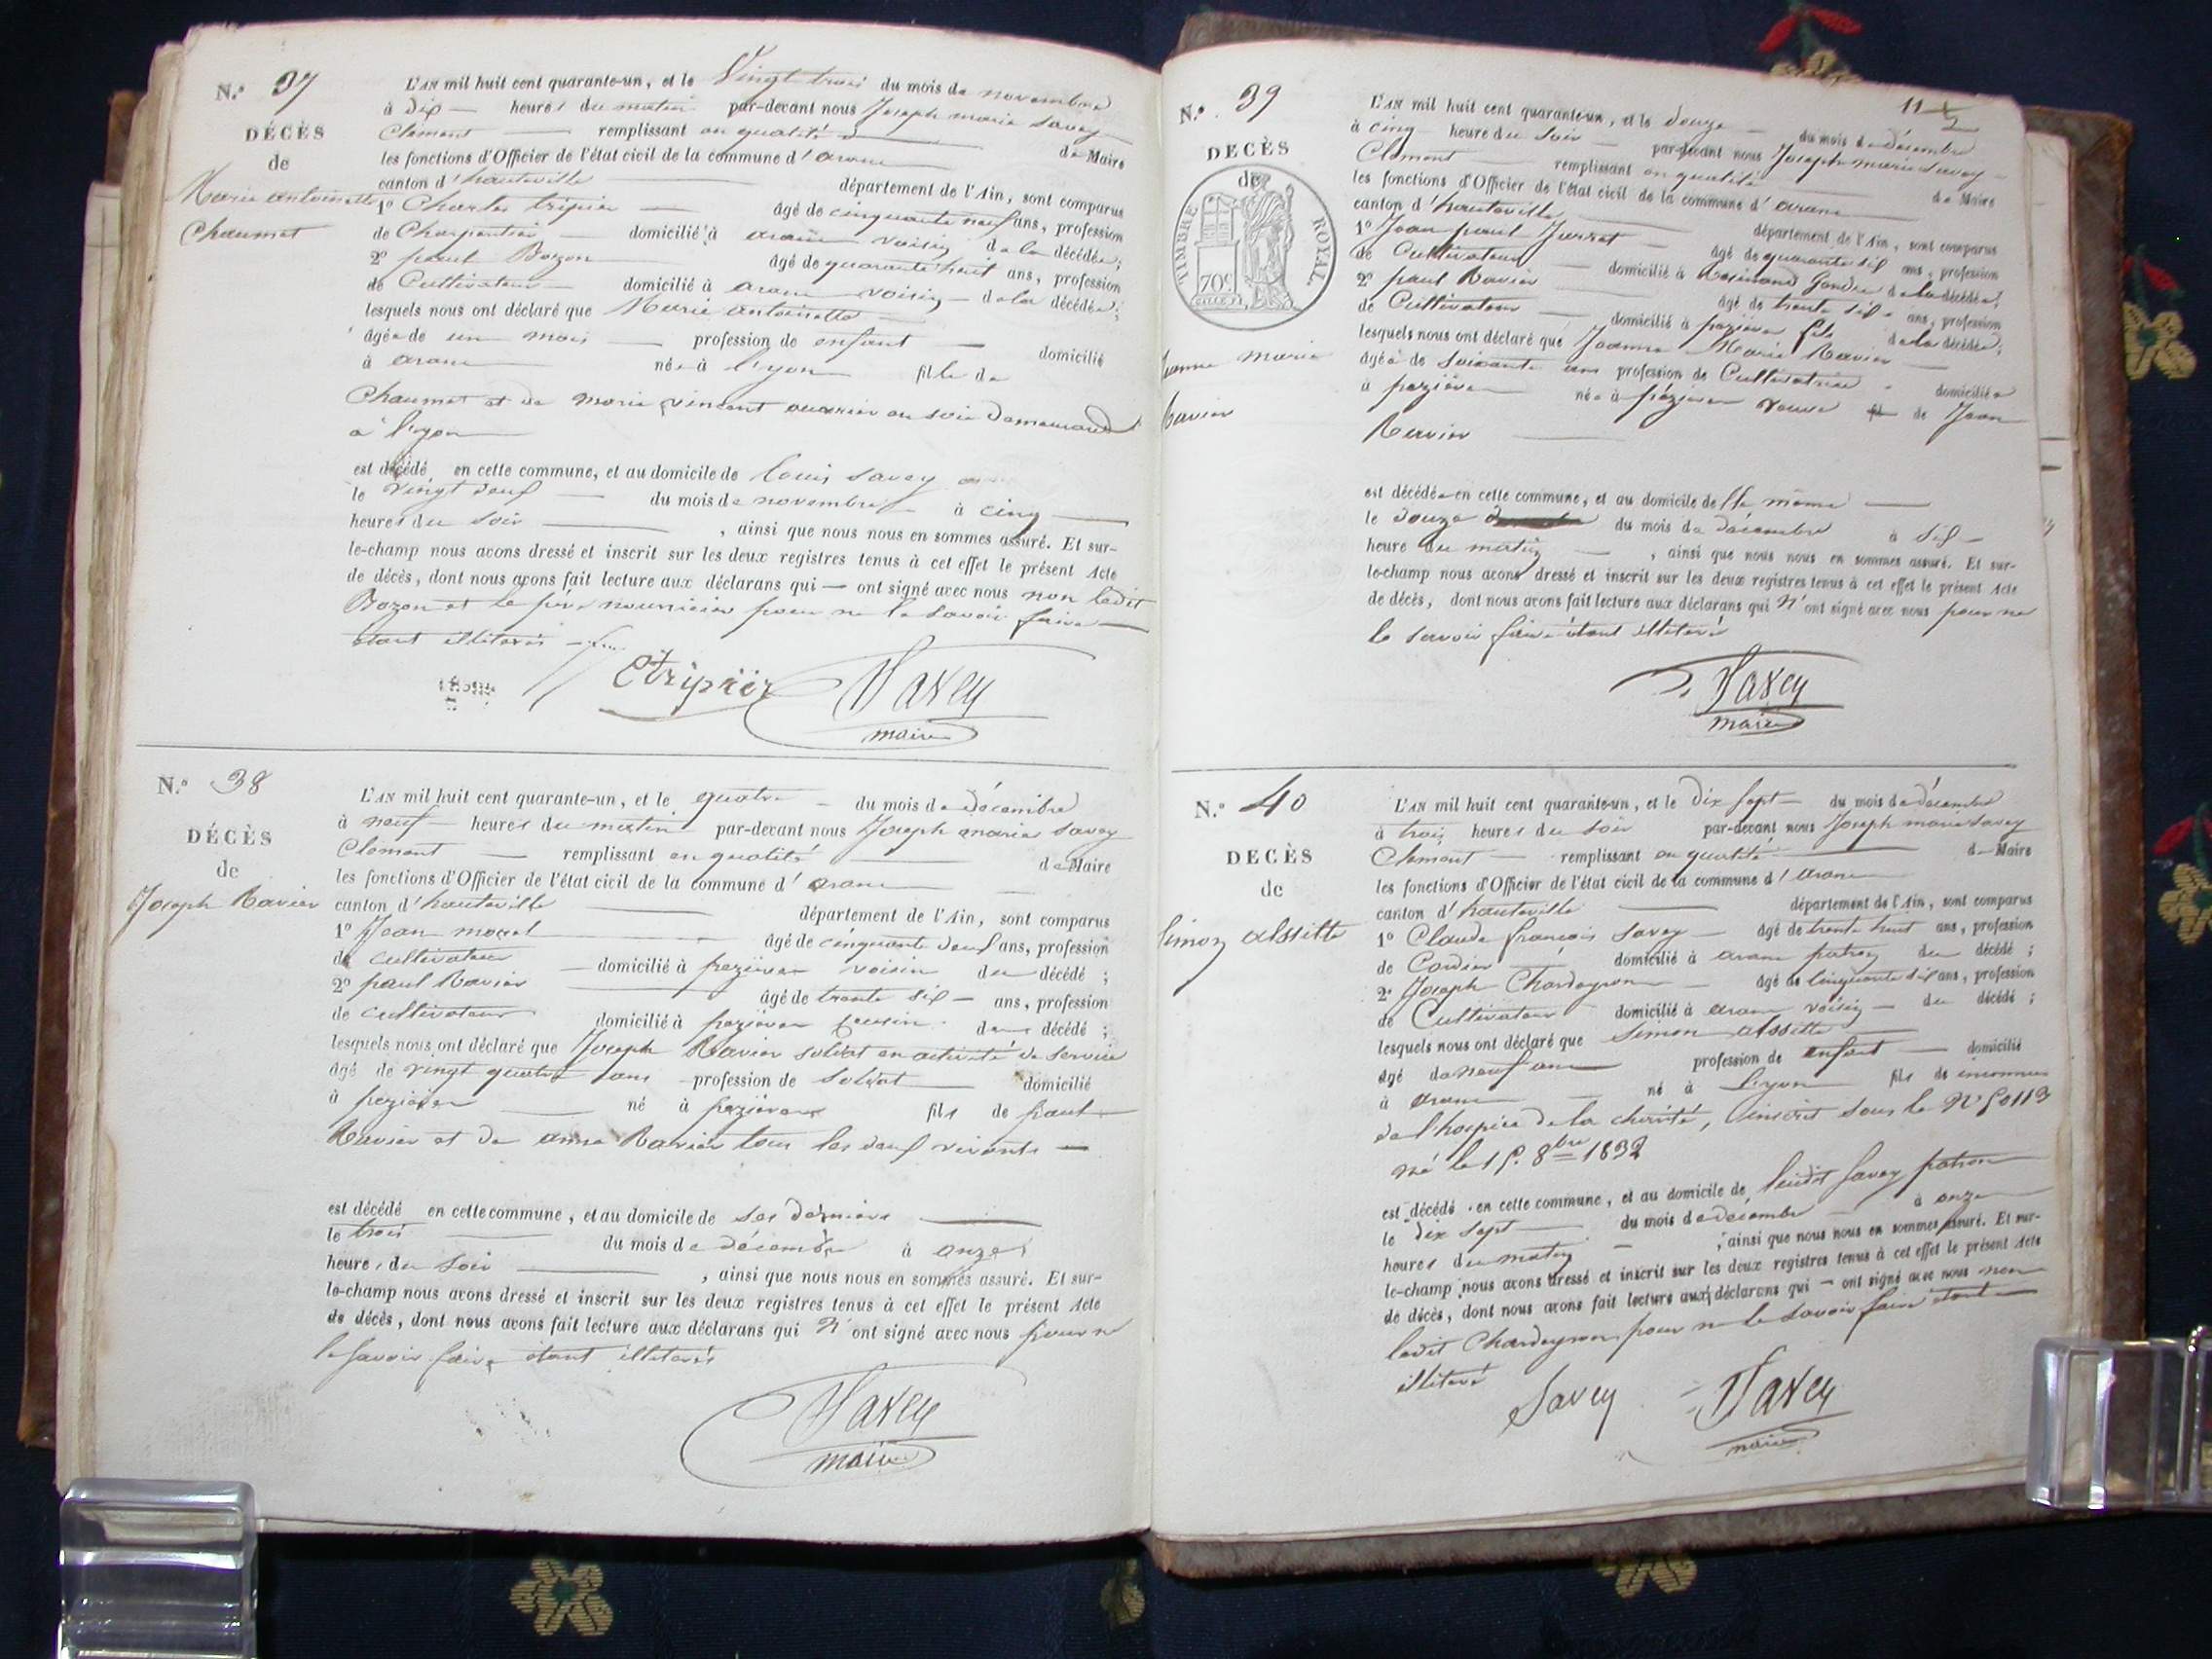 N.° 37
DÉCÈS
de
Marie antoinette
Chaumet
L'AN mil huit cent quarante-un, et le Vingt trois du mois de novembre
à dix heures du matin par-devant nous Joseph marie Savey
Clément remplissant en qualité de Maire
les fonctions d'Officier de l'état civil de la commune d'aranc
canton d'hauteville département de l'Ain, sont comparus
1° Charles tripier âgé de cinquante neuf ans, profession
de Charpentier domicilié à aranc voisin de la décédée;
2° paul Bozon âgé de quarante huit ans, profession
de Cultivateur domicilié à aranc voisin de la décédée;
lesquels nous ont déclaré que Marie antoinette
âgée de un mois profession de enfant domicilié
à aranc née à lyon fille de
Chaumet et de marie vincent ouvrier en soie demeurand
à lyon
est décédé en cette commune, et au domicile de louis Savey
le vingt deux du mois de novembre à cinq
heures du soir , ainsi que nous nous en sommes assuré. Et sur-
le-champ nous avons dressé et inscrit sur les deux registres tenus à cet effet le présent Acte
de décès, dont nous avons fait lecture aux déclarans qui ont signé avec nous non ledit
Bozon et le père nourricier pour ne le savoir faire
étant illiterés
Ctripier Savey
maire
N.° 38
DÉCÈS
de
Joseph Ravier
L'AN mil huit cent quarante-un, et le quatre du mois de décembre
à neuf heures du matin par-devant nous Joseph marie Savey
Clement remplissant en qualité de Maire
les fonctions d'Officier de l'état civil de la commune d'aranc
canton d'hauteville département de l'Ain, sont comparus
1° Jean morel âgé de cinquante deux ans, profession
de cultivateur domicilié à pezières voisin du décédé;
2° paul Ravier âgé de trente six ans, profession
de cultivateur domicilié à pezières cousin du décédé;
lesquels nous ont déclaré que Joseph Ravier soldat en activité de service
âgé de vingt quatre ans profession de soldat domicilié
à pezières né à pezières fils de paul
Ravier et de anne Ravier tous les deux vivants
est décédé en cette commune, et au domicile de ses derniers
le trois du mois de décembre à onze
heures du soir , ainsi que nous nous en sommes assuré. Et sur-
le-champ nous avons dressé et inscrit sur les deux registres tenus à cet effet le présent Acte
de décès, dont nous avons fait lecture aux déclarans qui n'ont signé avec nous pour ne
le savoir faire étant illiterés
Savey
maire
11
N.° 39
DECÈS
de
TIMBRE ROYAL
70c
Jeanne marie
Ravier
L'AN mil huit cent quarante-un, et le douze du mois de décembre
à cinq heure du soir par-devant nous Joseph marie Savey
Clement remplissant en qualité de Maire
les fonctions d'Officier de l'état civil de la commune d'aranc
canton d'hauteville département de l'Ain, sont comparus
1° Jean paul âgé de quarante six ans, profession
de Cultivateur domicilié à Resinand Gendre de la décédée;
2° paul Ravier âgé de trente six ans, profession
de Cultivateur domicilié à pezières fils de la décédée;
lesquels nous ont déclaré que Jeanne Marie Ravier
âgée de soixante ans profession de Cultivatrice domiciliée
à pezières née à pezières veuve de Jean
Ravier
est décédée en cette commune, et au domicile de elle même
le douze du mois de décembre à six
heure du matin , ainsi que nous nous en sommes assuré. Et sur-
le-champ nous avons dressé et inscrit sur les deux registres tenus à cet effet le présent Acte
de décès, dont nous avons fait lecture aux déclarans qui n'ont signé avec nous pour ne
le savoir faire étant illiteré
Savey
maire
N.° 40
DECÈS
de
Simon alssitte
L'AN mil huit cent quarante-un, et le dix sept du mois de décembre
à trois heures du soir par-devant nous Joseph marie Savey
Clement remplissant en qualité de Maire
les fonctions d'Officier de l'état civil de la commune d'aranc
canton d'hauteville département de l'Ain, sont comparus
1° Claude françois Savey âgé de trente huit ans, profession
de Cordier domicilié à aranc patron du décédé;
2° Joseph Chardeyron âgé de cinquante six ans, profession
de Cultivateur domicilié à aranc voisin du décédé;
lesquels nous ont déclaré que Simon alssitte
âgé de neuf ans profession de enfant domicilié
à aranc né à lyon fils de inconnus
de l'hospice de la charité, inscrit sous le N° 50113
né le 15. 8bre 1832
est décédé en cette commune, et au domicile de ledit Savey patron
le dix sept du mois de décembre à onze
heures du matin , ainsi que nous nous en sommes assuré. Et sur-
le-champ nous avons dressé et inscrit sur les deux registres tenus à cet effet le présent Acte
de décès, dont nous avons fait lecture aux déclarans qui ont signé avec nous non
ledit Chardeyron pour ne le savoir faire étant
illiteré
Savey Savey
maire